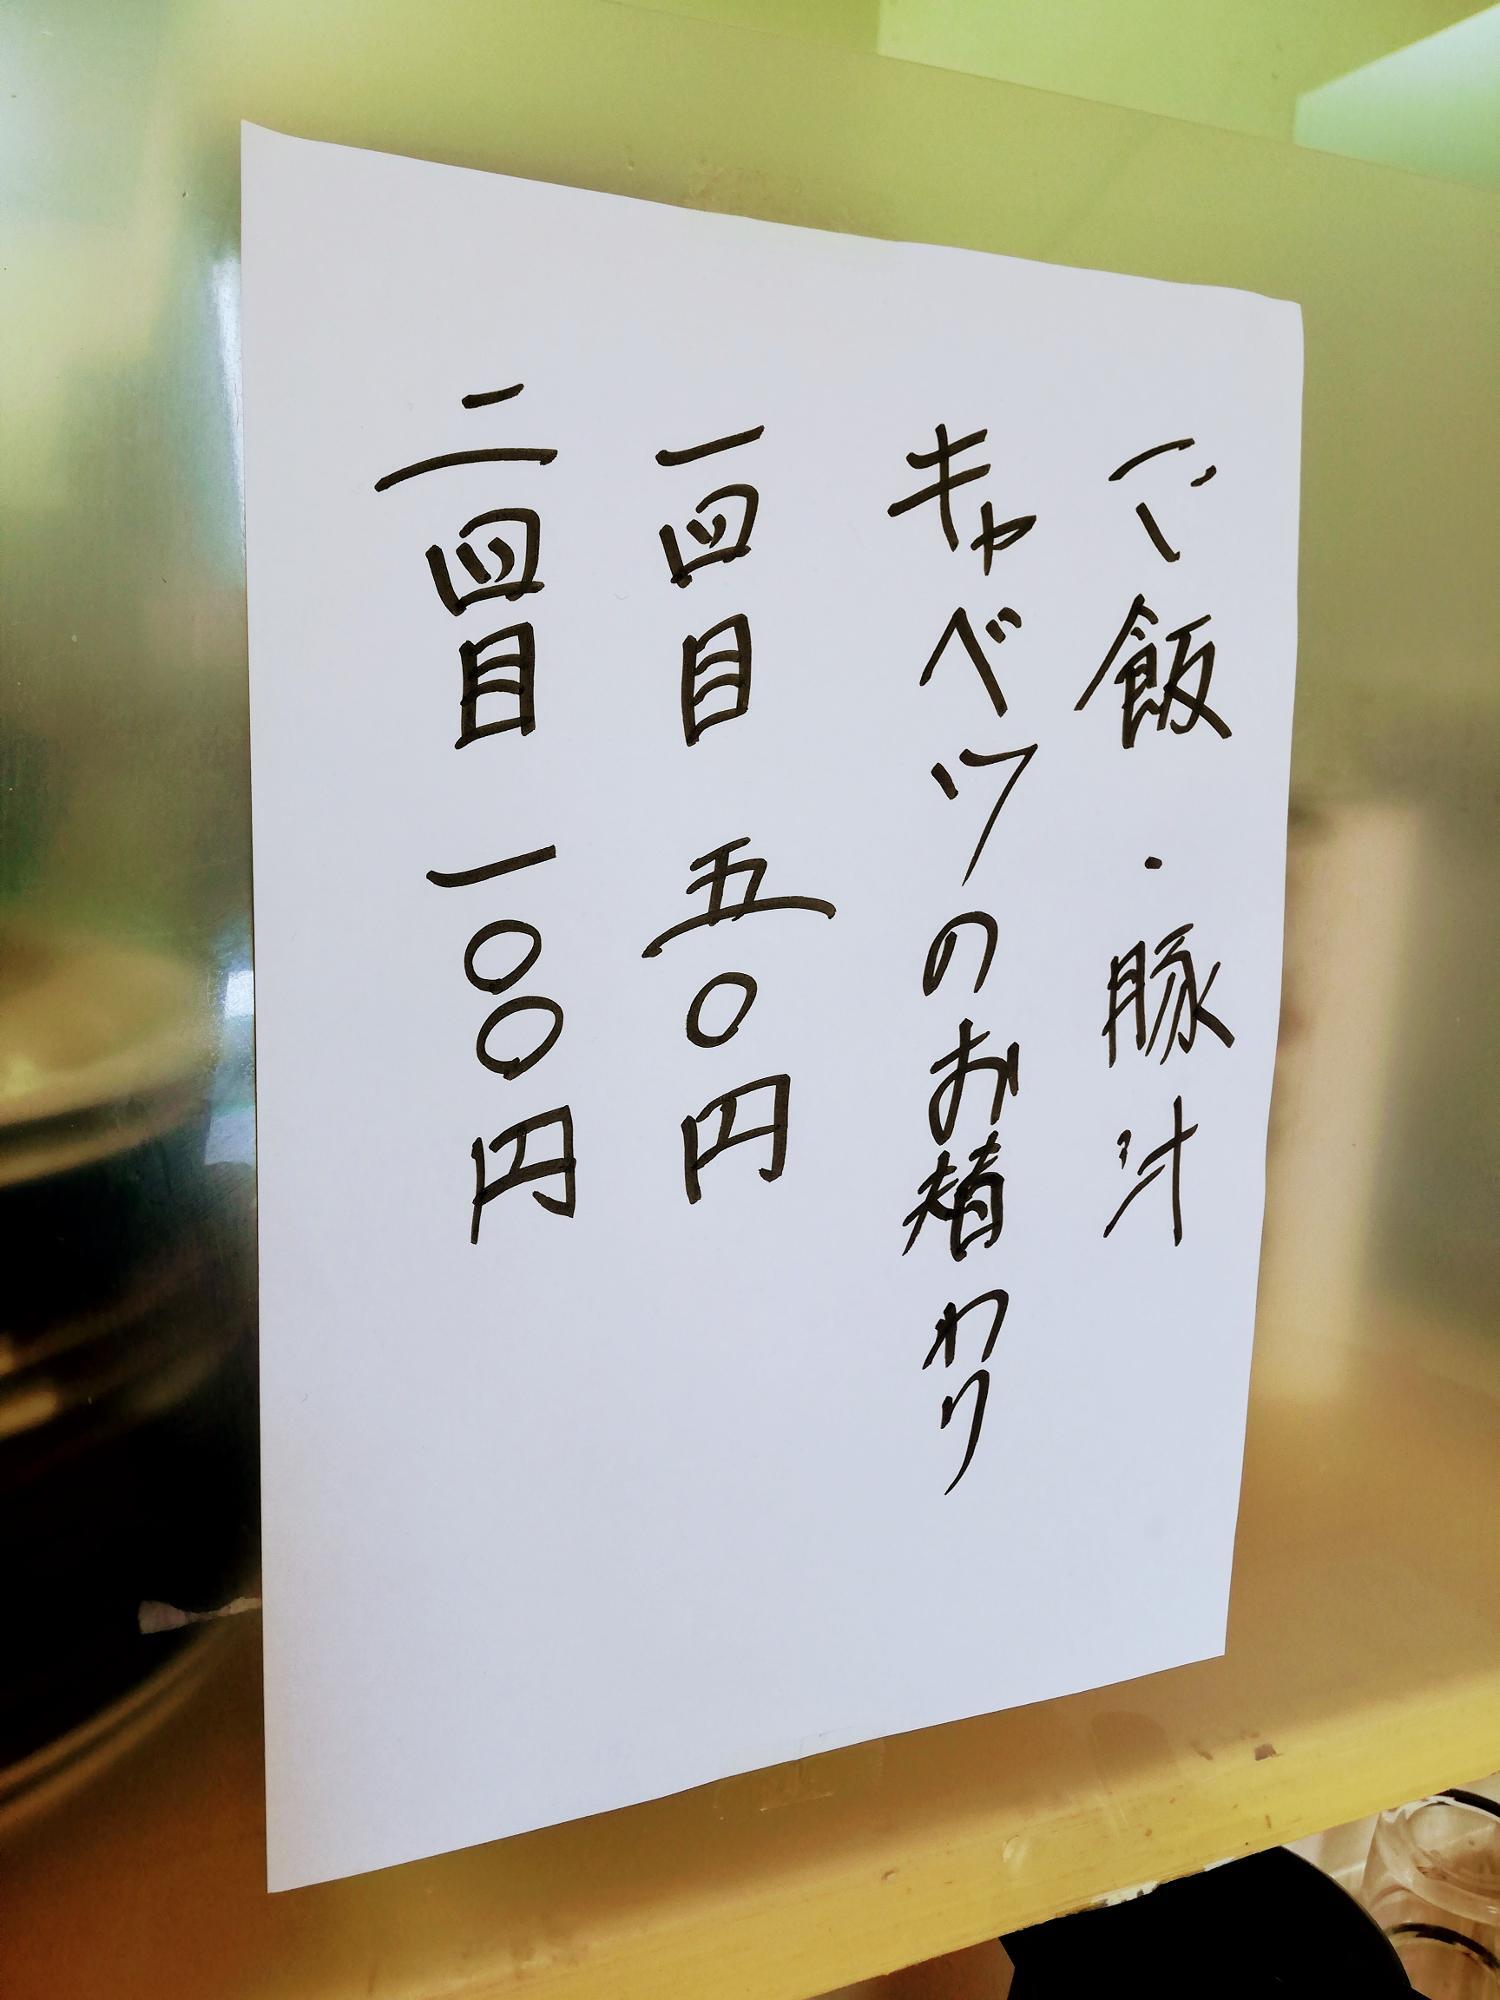 ご飯・豚汁
キャベツのお替わり
一回目 五〇円
二回目 一〇〇円